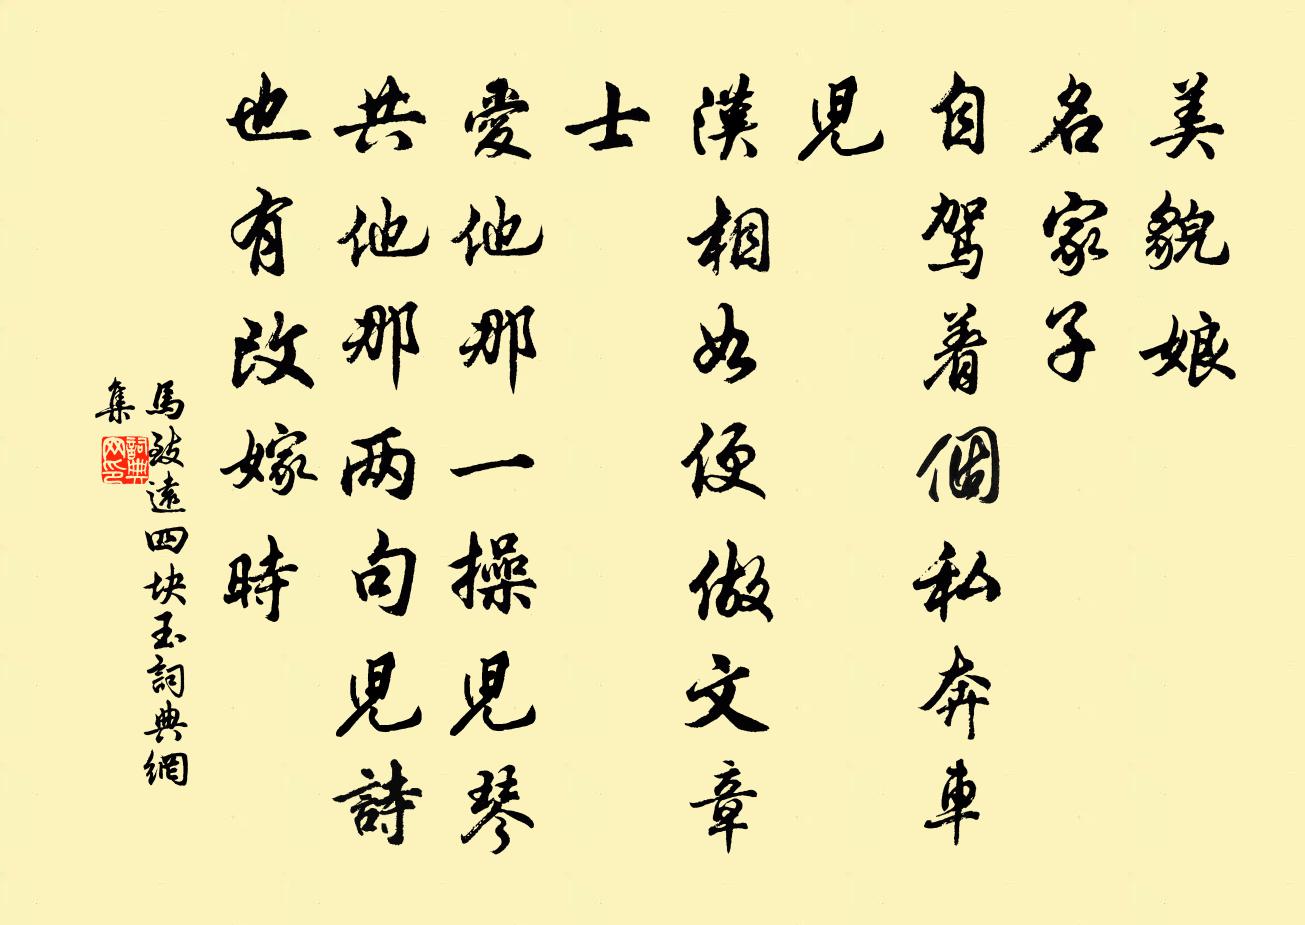 美貌娘
名家子
自駕着個私奔車
児
漢相如便做文章
士
愛他那一操児琴
共他那两句児詩
也有改嫁時
馬致遠四块玉詞典網
集
詞典
网印